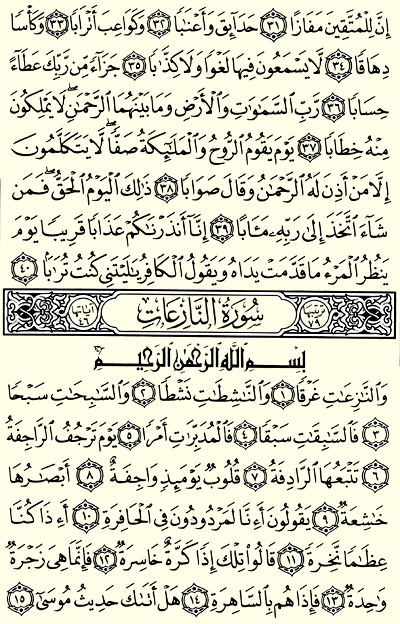 إِنَّ لِلْمُتَّقِينَ مَفَازًا ٣١ حَدَآئِقَ وَأَعْنَٰبًا ٣٢ وَكَوَاعِبَ أَتْرَابًا ٣٣ وَكَأْسًا
دِهَاقًا ٣٤ لَّا يَسْمَعُونَ فِيهَا لَغْوًا وَلَا كِذَّٰبًا ٣٥ جَزَآءً مِّن رَّبِّكَ عَطَآءً
حِسَابًا ٣٦ رَّبِّ السَّمَٰوَٰتِ وَالْأَرْضِ وَمَا بَيْنَهُمَا الرَّحْمَٰنِ لَا يَمْلِكُونَ
مِنْهُ خِطَابًا ٣٧ يَوْمَ يَقُومُ الرُّوحُ وَالْمَلَٰٓئِكَةُ صَفًّا لَّا يَتَكَلَّمُونَ
إِلَّا مَنْ أَذِنَ لَهُ الرَّحْمَٰنُ وَقَالَ صَوَابًا ٣٨ ذَٰلِكَ الْيَوْمُ الْحَقُّ فَمَن
شَآءَ اتَّخَذَ إِلَىٰ رَبِّهِۦ مَـَٔابًا ٣٩ إِنَّآ أَنذَرْنَٰكُمْ عَذَابًا قَرِيبًا يَوْمَ
يَنظُرُ الْمَرْءُ مَا قَدَّمَتْ يَدَاهُ وَيَقُولُ الْكَافِرُ يَٰلَيْتَنِي كُنتُ تُرَٰبًا ٤٠
ترتيبها ٧٩ سُورَةُ النَّازِعَاتِ آياتها ٤٦
بِسْمِ اللَّهِ الرَّحْمَٰنِ الرَّحِيمِ
وَالنَّٰزِعَٰتِ غَرْقًا ١ وَالنَّٰشِطَٰتِ نَشْطًا ٢ وَالسَّٰبِحَٰتِ سَبْحًا
٣ فَالسَّٰبِقَٰتِ سَبْقًا ٤ فَالْمُدَبِّرَٰتِ أَمْرًا ٥ يَوْمَ تَرْجُفُ الرَّاجِفَةُ
٦ تَتْبَعُهَا الرَّادِفَةُ ٧ قُلُوبٌ يَوْمَئِذٍ وَاجِفَةٌ ٨ أَبْصَٰرُهَا
خَٰشِعَةٌ ٩ يَقُولُونَ أَءِنَّا لَمَرْدُودُونَ فِي الْحَافِرَةِ ١٠ أَءِذَا كُنَّا
عِظَٰمًا نَّخِرَةً ١١ قَالُوا تِلْكَ إِذًا كَرَّةٌ خَاسِرَةٌ ١٢ فَإِنَّمَا هِيَ زَجْرَةٌ
وَٰحِدَةٌ ١٣ فَإِذَا هُم بِالسَّاهِرَةِ ١٤ هَلْ أَتَىٰكَ حَدِيثُ مُوسَىٰٓ ١٥